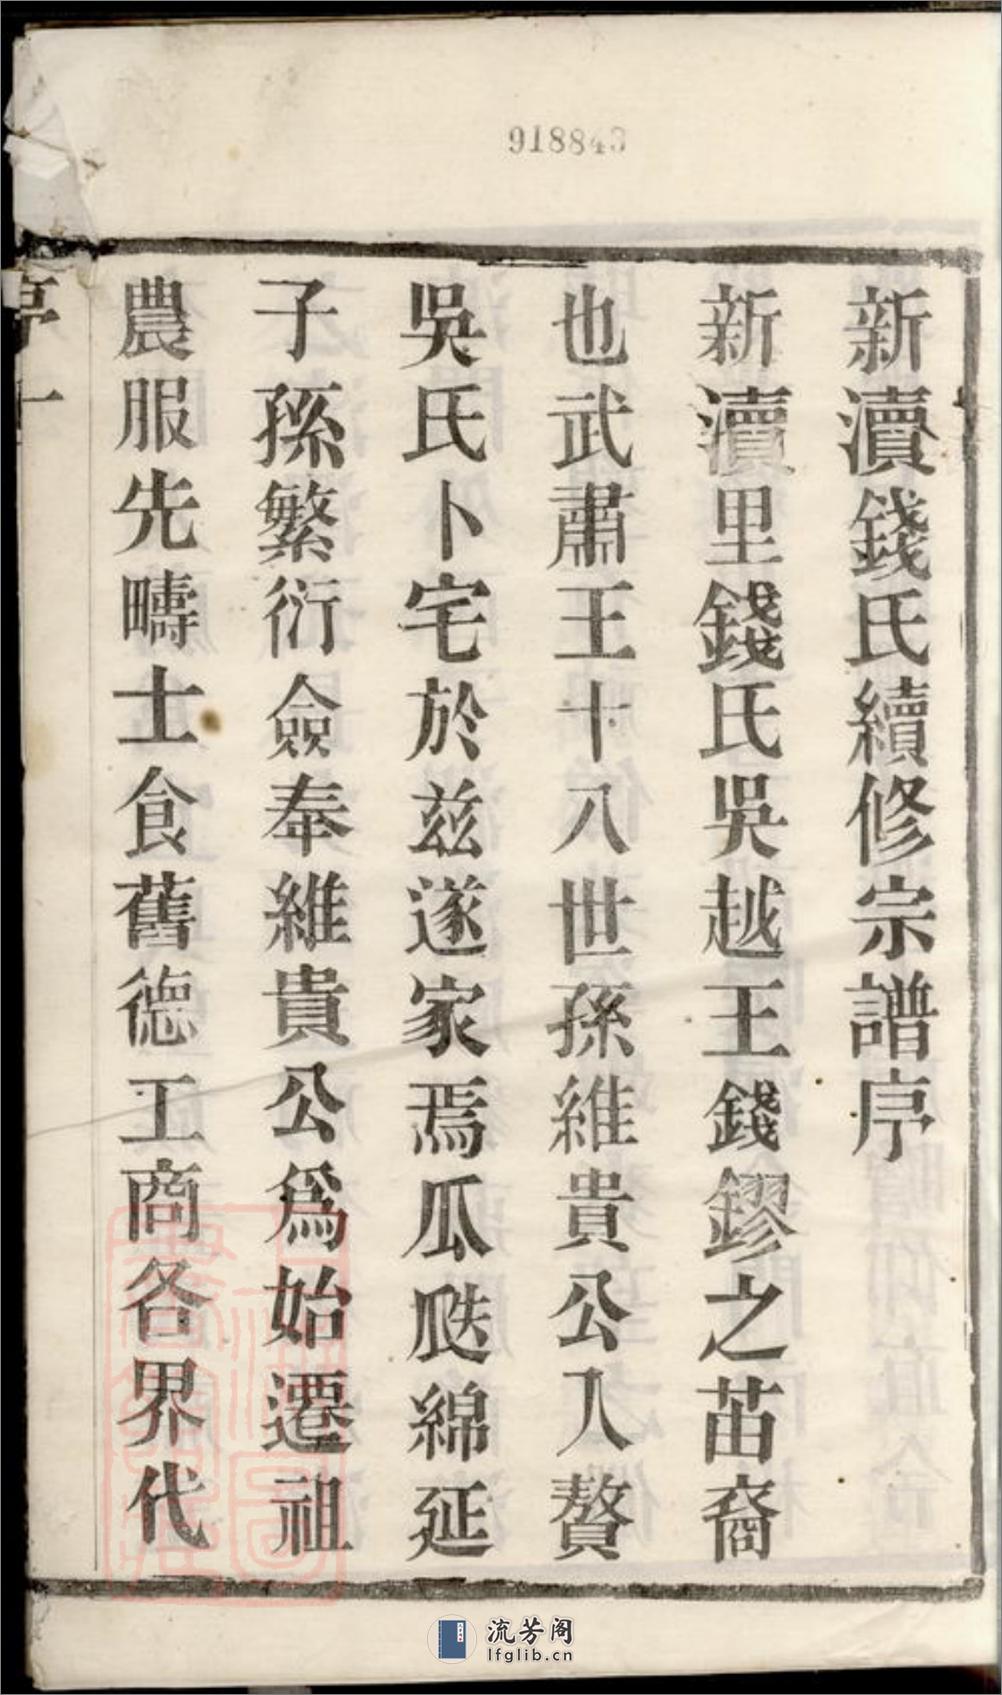 918843
新瀆錢氏續修宗譜序
新瀆里錢氏吳越王錢鏐之苗裔
也武肅王十八世孫維貴公入贅
吳氏卜宅於兹遂家焉瓜瓞綿延
子孫繁衍僉奉維貴公爲始遷祖
農服先疇士食舊德工商各界代
序
流芳阁
lfglib.cn